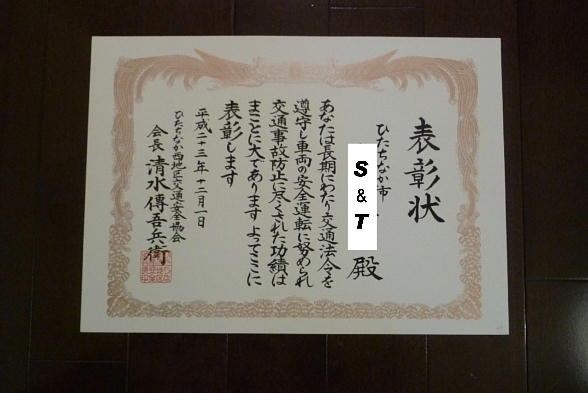 表彰状
ひたちなか市
S & T 殿
あなたは長期にわたり交通法令を
遵守し車両の安全運転に努められ
交通事故防止に尽くされた功績は
まことに大であります よってここに
表彰します
平成二十三年十二月一日
ひたちなか西地区交通安全協会
会長 清水傳吾兵衛